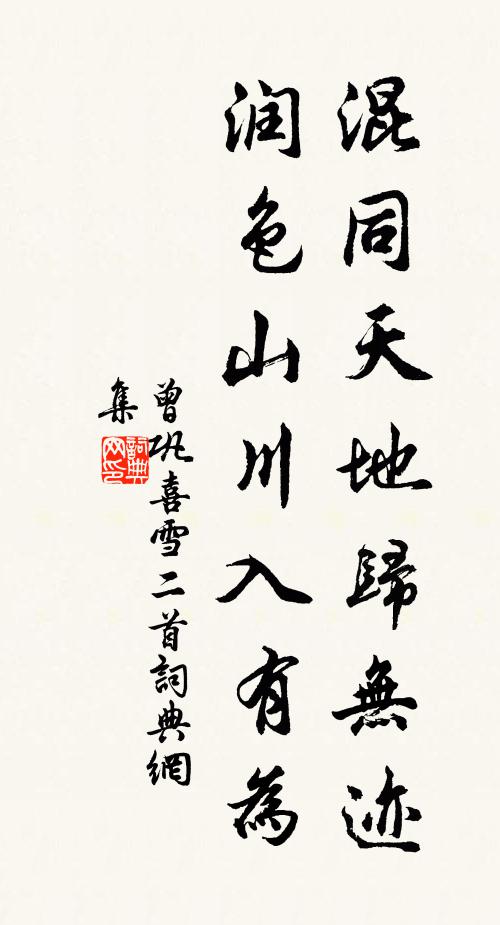 混同天地歸無迹
润色山川入有為
曾巩喜雪二首詞典網
集
詞典
网印